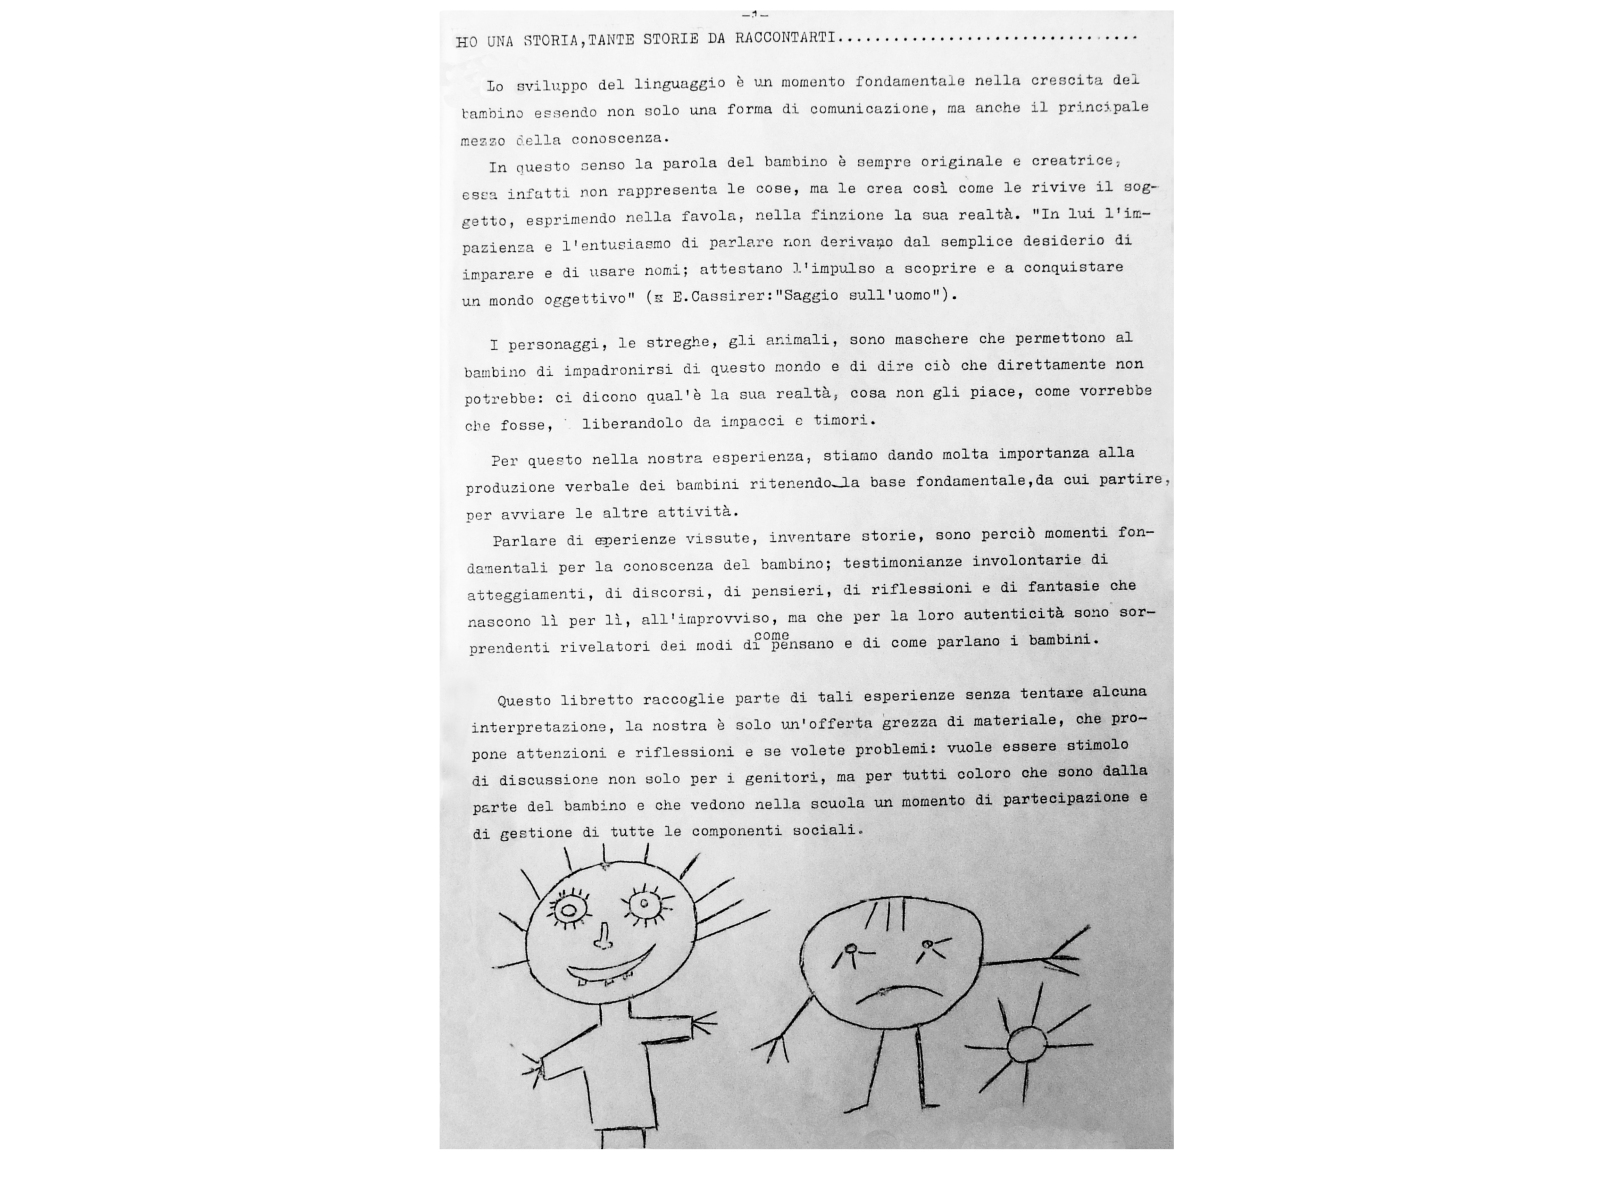 -1-
HO UNA STORIA,TANTE STORIE DA RACCONTARTI................................
Lo sviluppo del linguaggio è un momento fondamentale nella crescita del
bambino essendo non solo una forma di comunicazione, ma anche il principale
mezzo della conoscenza.
In questo senso la parola del bambino è sempre originale e creatrice,
essa infatti non rappresenta le cose, ma le crea così come le rivive il sog-
getto, esprimendo nella favola, nella finzione la sua realtà. "In lui l'im-
pazienza e l'entusiasmo di parlare non derivano dal semplice desiderio di
imparare e di usare nomi; attestano l'impulso a scoprire e a conquistare
un mondo oggettivo" ( E.Cassirer:"Saggio sull'uomo").
I personaggi, le streghe, gli animali, sono maschere che permettono al
bambino di impadronirsi di questo mondo e di dire ciò che direttamente non
potrebbe: ci dicono qual'è la sua realtà, cosa non gli piace, come vorrebbe
che fosse, liberandolo da impacci e timori.
Per questo nella nostra esperienza, stiamo dando molta importanza alla
produzione verbale dei bambini ritenendola base fondamentale,da cui partire,
per avviare le altre attività.
Parlare di esperienze vissute, inventare storie, sono perciò momenti fon-
damentali per la conoscenza del bambino; testimonianze involontarie di
atteggiamenti, di discorsi, di pensieri, di riflessioni e di fantasie che
nascono lì per lì, all'improvviso, ma che per la loro autenticità sono sor-
prendenti rivelatori dei modi di come pensano e di come parlano i bambini.
Questo libretto raccoglie parte di tali esperienze senza tentare alcuna
interpretazione, la nostra è solo un'offerta grezza di materiale, che pro-
pone attenzioni e riflessioni e se volete problemi: vuole essere stimolo
di discussione non solo per i genitori, ma per tutti coloro che sono dalla
parte del bambino e che vedono nella scuola un momento di partecipazione e
di gestione di tutte le componenti sociali.